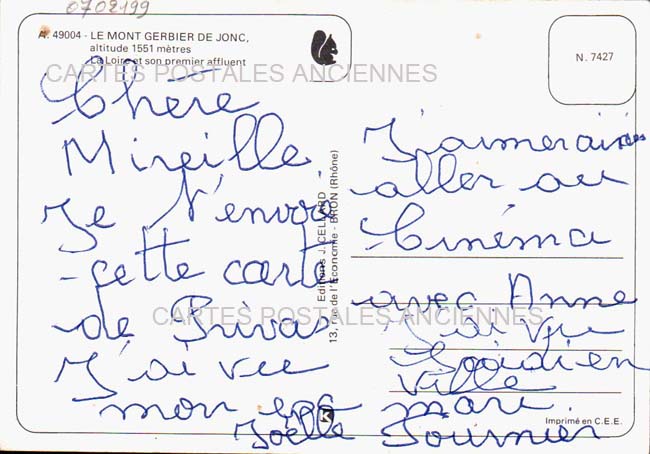 0702199
A. 49004 - LE MONT GERBIER DE JONC,
altitude 1551 mètres
La Loire et son premier affluent
N. 7427
CARTES POSTALES ANCIENNES
Chère
Mireille
Je t'envoie
cette carte
de Privas
J'ai vue
mon
Editions J. CELLARD
13, rue de l'Economie - BRON (Rhône)
J'aimerais
aller au
Cinéma
avec Anne
J'ai vue
en
ville
mari
Joëlle Fournier
CARTES POSTALES ANCIENNES
K
Imprimé en C.E.E.